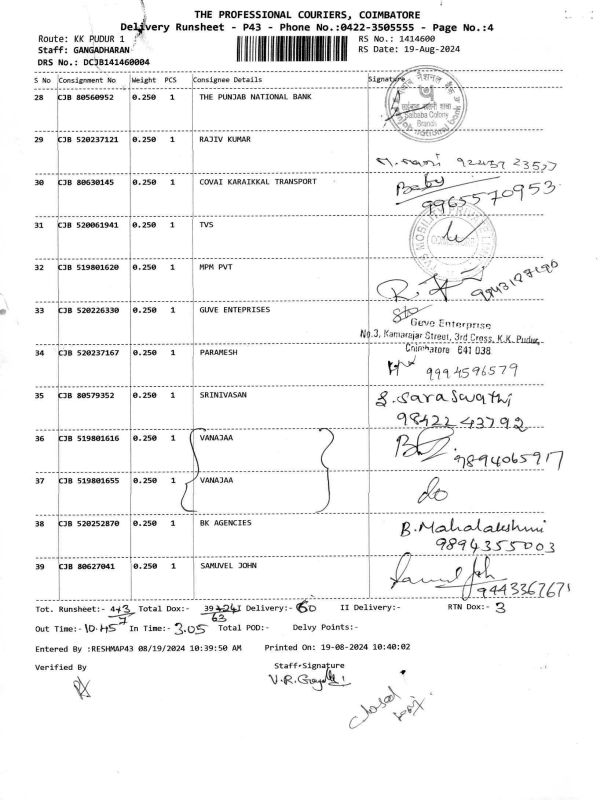 THE PROFESSIONAL COURIERS, COIMBATORE
Delivery Runsheet - P43 - Phone No.:0422-3505555 - Page No.:4
Route: KK PUDUR 1 RS No.: 1414600
Staff: GANGADHARAN RS Date: 19-Aug-2024
DRS No.: DCJB141460004
S No Consignment No Weight PCS Consignee Details Signature
28 CJB 80560952 0.250 1 THE PUNJAB NATIONAL BANK
Saibaba Colony
Branch
29 CJB 520237121 0.250 1 RAJIV KUMAR
30 CJB 80630145 0.250 1 COVAI KARAIKKAL TRANSPORT Baby
9965570953
31 CJB 520061941 0.250 1 TVS
32 CJB 519801620 0.250 1 MPM PVT
33 CJB 520226330 0.250 1 GUVE ENTEPRISES
Guve Enterprise
No.3, Kamarajar Street, 3rd Cross, K.K. Pudur,
Coimbatore 641 038.
34 CJB 520237167 0.250 1 PARAMESH
9994596579
35 CJB 80579352 0.250 1 SRINIVASAN S.Saraswathi
98422 43792
36 CJB 519801616 0.250 1 VANAJAA
7894065917
37 CJB 519801655 0.250 1 VANAJAA do
38 CJB 520252870 0.250 1 BK AGENCIES B.Mahalakshmi
9894355003
39 CJB 80627041 0.250 1 SAMUVEL JOHN
9443367671
Tot. Runsheet:- 4+3 Total Dox:- 39+24 I Delivery:- 60 II Delivery:- RTN Dox:- 3
7 63
Out Time:- 10.45 In Time:- 3.05 Total POD:- Delvy Points:-
Entered By :RESHMAP43 08/19/2024 10:39:50 AM Printed On: 19-08-2024 10:40:02
Verified By Staff Signature
closed